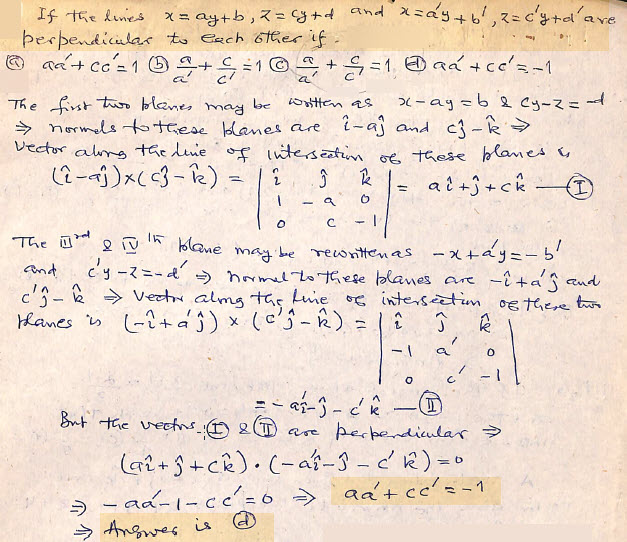 If the lines x = ay+b, z = cy+d and x = a'y+b', z = c'y+d' are
perpendicular to each other if
(a) aa'+cc'=1 (b) a/a' + c/c' = 1 (c) a/a' + c/c' = 1, (d) aa'+cc'=-1
The first two planes may be written as x-ay=b & cy-z=-d
⇒ normals to these planes are î-aĵ and cĵ-k̂ ⇒
Vector along the line of intersection of these planes is
(î-aĵ)×(cĵ-k̂) = | î ĵ k̂ | = aî+ĵ+ck̂ — (I)
1 -a 0
0 c -1
The III rd & IV th plane may be rewritten as -x+a'y=-b'
and c'y-z=-d' ⇒ normal to these planes are -î+a'ĵ and
c'ĵ-k̂ ⇒ Vector along the line of intersection of these two
planes is (-î+a'ĵ) × (c'ĵ-k̂) = | î ĵ k̂ |
-1 a' 0
0 c' -1
= -a'î-ĵ-c'k̂ — (II)
But the vectors (I) & (II) are perpendicular ⇒
(aî+ĵ+ck̂)·(-a'î-ĵ-c'k̂)=0
⇒ -aa'-1-cc'=0 ⇒ aa'+cc'=-1
⇒ Answer is (d)